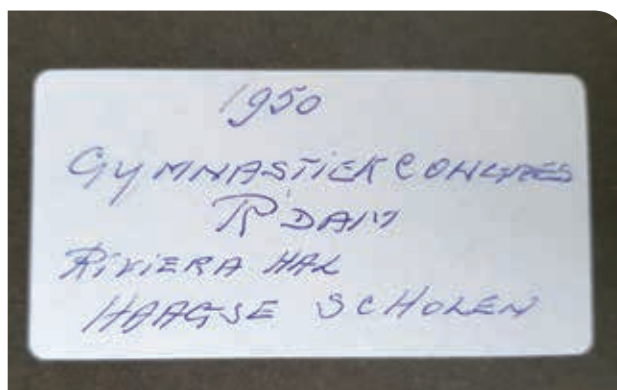 1950
GYMNASTIEKCONGRES
R'DAM
RIVIERA HAL
HAAGSE SCHOLEN